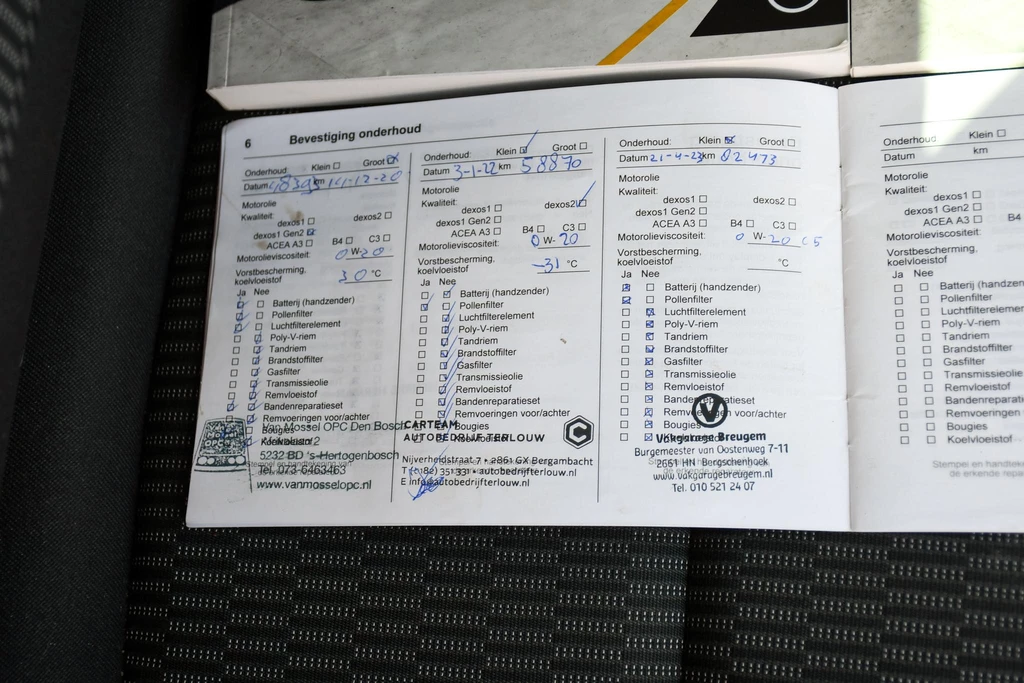 6 Bevestiging onderhoud
Onderhoud Klein Groot
Datum 48393 km 14-12-20
Motorolie
Kwaliteit:
dexos1 dexos2
dexos1 Gen2
ACEA A3 B4 C3
Motorolieviscositeit: 0 W-20
Vorstbescherming,
koelvloeistof 30 °C
Ja Nee
Batterij (handzender)
Pollenfilter
Luchtfilterelement
Poly-V-riem
Tandriem
Brandstoffilter
Gasfilter
Transmissieolie
Remvloeistof
Bandenreparatieset
Remvoeringen voor/achter
Bougies
Van Mossel OPC Den Bosch
5232 BD 's-Hertogenbosch
Tel. 073-6463463
www.vanmosselopc.nl
Onderhoud: Klein Groot
Datum 3-1-22 km 58870
Motorolie
Kwaliteit:
dexos1 dexos2
dexos1 Gen2
ACEA A3 B4 C3
Motorolieviscositeit: 0 W-20
Vorstbescherming,
koelvloeistof -31 °C
Ja Nee
Batterij (handzender)
Pollenfilter
Luchtfilterelement
Poly-V-riem
Tandriem
Brandstoffilter
Gasfilter
Transmissieolie
Remvloeistof
Bandenreparatieset
Remvoeringen voor/achter
Bougies
CARTEAM
AUTOBEDRIJF TERLOUW
Nijverheidstraat 7 • 2861 GX Bergambacht
E info@autobedrijfterlouw.nl
Onderhoud: Klein Groot
Datum 21-4-23 km 82473
Motorolie
Kwaliteit:
dexos1 dexos2
dexos1 Gen2
ACEA A3 B4 C3
Motorolieviscositeit: 0 W-20 C5
Vorstbescherming,
koelvloeistof °C
Ja Nee
Batterij (handzender)
Pollenfilter
Luchtfilterelement
Poly-V-riem
Tandriem
Brandstoffilter
Gasfilter
Transmissieolie
Remvloeistof
Bandenreparatieset
Remvoeringen voor/achter
Bougies
Vakgarage Breugem
Burgemeester van Oostenweg 7-11
2661 HN Bergschenhoek
www.vakgaragebreugem.nl
Tel. 010 521 24 07
Onderhoud: Klein
Datum km
Motorolie
Kwaliteit:
dexos1
dexos1 Gen2
ACEA A3 B4
Motorolieviscositeit:
Vorstbescherming,
koelvloeistof
Ja Nee
Batterij (handzen
Pollenfilter
Luchtfilterelemen
Poly-V-riem
Tandriem
Brandstoffilter
Gasfilter
Transmissieolie
Remvloeistof
Bandenreparaties
Remvoeringen
Bougies
Koelvloeistof
Stempel en handteke
de erkende repa